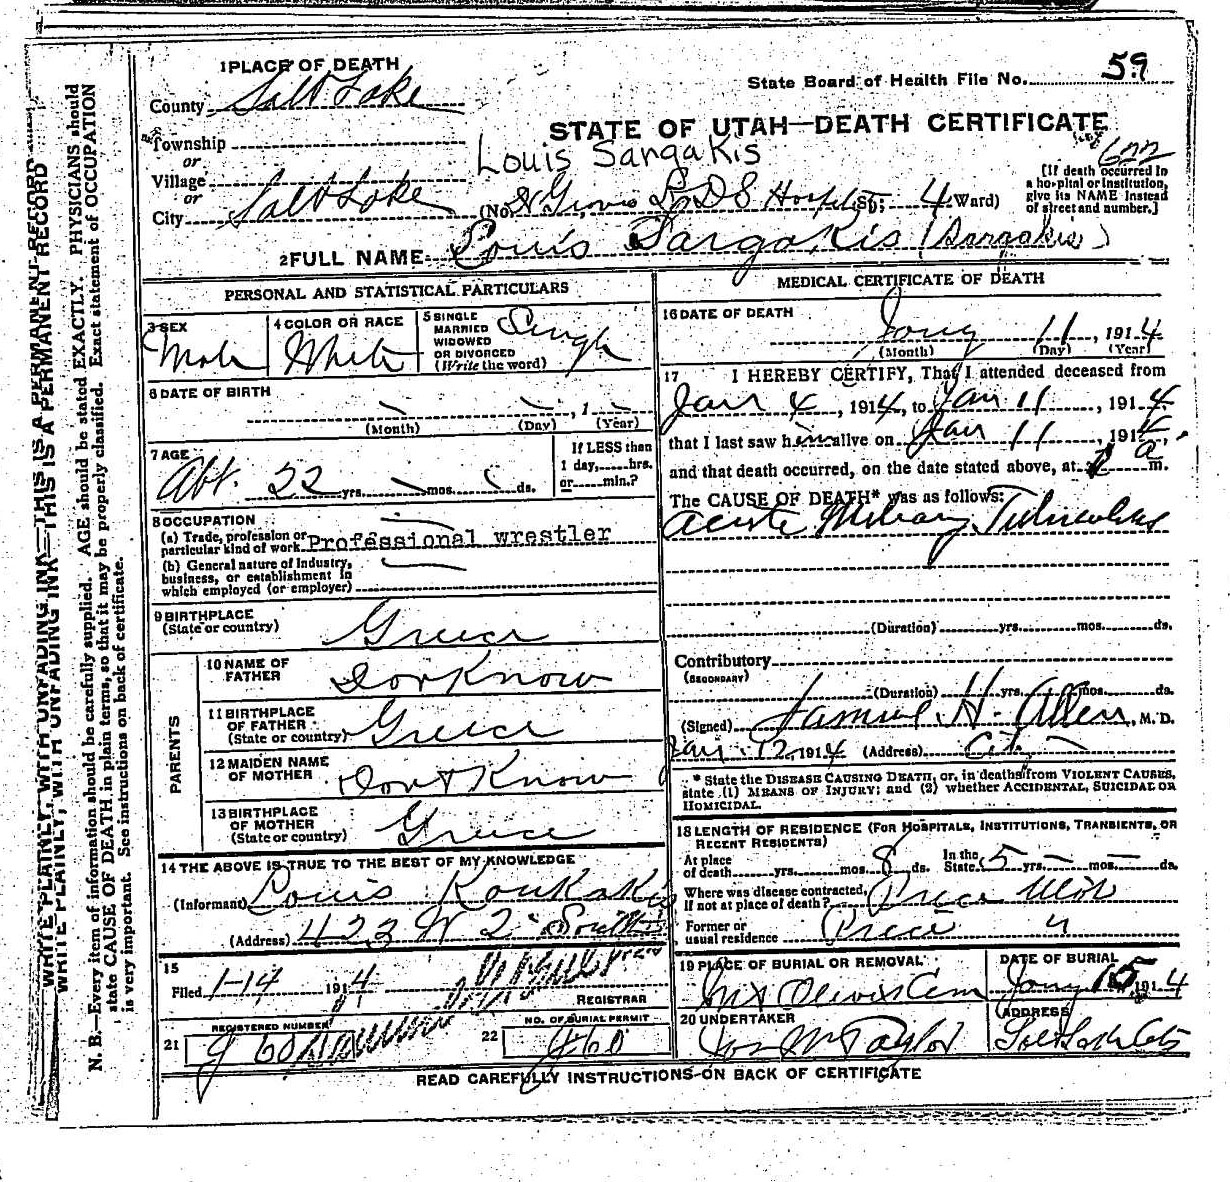 1 PLACE OF DEATH
State Board of Health File No. 59
County Salt Lake
STATE OF UTAH—DEATH CERTIFICATE
Township
Louis Sargakis
622
or
Village
or
City Salt Lake
(No. LDS Hospital St; 4 Ward)
[If death occurred in
a hospital or institution,
give its NAME instead
of street and number.]
2 FULL NAME Louis Sargakis (Sargakis)
PERSONAL AND STATISTICAL PARTICULARS
3 SEX
Male
4 COLOR OR RACE
White
5 SINGLE
MARRIED
WIDOWED
OR DIVORCED
(Write the word)
Single
6 DATE OF BIRTH
, 1
(Month) (Day) (Year)
7 AGE
Abt. 22 yrs. mos. ds.
If LESS than
1 day, hrs.
or min.?
8 OCCUPATION
(a) Trade, profession or
particular kind of work Professional wrestler
(b) General nature of Industry,
business, or establishment in
which employed (or employer)
9 BIRTHPLACE
(State or country)
Greece
PARENTS
10 NAME OF
FATHER
Dont Know
11 BIRTHPLACE
OF FATHER
(State or country)
Greece
12 MAIDEN NAME
OF MOTHER
Dont Know
13 BIRTHPLACE
OF MOTHER
(State or country)
Greece
14 THE ABOVE IS TRUE TO THE BEST OF MY KNOWLEDGE
(Informant) Louis Koukakis
(Address) 423 W 2 South
15
Filed 1-14 1914
REGISTRAR
REGISTERED NUMBER
21
NO. OF BURIAL PERMIT
22
MEDICAL CERTIFICATE OF DEATH
16 DATE OF DEATH
Jany 11, 1914
(Month) (Day) (Year)
17 I HEREBY CERTIFY, That I attended deceased from
Jan 4, 1914, to Jan 11, 1914,
that I last saw him alive on Jan 11, 1914,
and that death occurred, on the date stated above, at a m.
The CAUSE OF DEATH* was as follows:
Acute Miliary Tuberculosis
(Duration) yrs. mos. ds.
Contributory
(SECONDARY)
(Duration) yrs. mos. ds.
(Signed) Samuel H. Allen, M.D.
Jan. 12, 1914 (Address) City
* State the DISEASE CAUSING DEATH, or, in deaths from VIOLENT CAUSES,
state (1) MEANS OF INJURY; and (2) whether ACCIDENTAL, SUICIDAL OR
HOMICIDAL.
18 LENGTH OF RESIDENCE (FOR HOSPITALS, INSTITUTIONS, TRANSIENTS, OR
RECENT RESIDENTS)
At place
of death yrs. mos. 8 ds.
In the
State 5 yrs. mos. ds.
Where was disease contracted,
If not at place of death? Price Utah
Former or
usual residence Price "
19 PLACE OF BURIAL OR REMOVAL
Mt Olivet Cem
DATE OF BURIAL
Jany 15 1914
20 UNDERTAKER
Jos Wm Taylor
(ADDRESS)
Salt Lake City
READ CAREFULLY INSTRUCTIONS ON BACK OF CERTIFICATE
WRITE PLAINLY, WITH UNFADING INK—THIS IS A PERMANENT RECORD
WRITE PLAINLY, WITH UNFADING INK—THIS IS A PERMANENT RECORD
N. B.—Every item of information should be carefully supplied. AGE should be stated EXACTLY. PHYSICIANS should
state CAUSE OF DEATH in plain terms, so that it may be properly classified. Exact statement of OCCUPATION
is very important. See instructions on back of certificate.